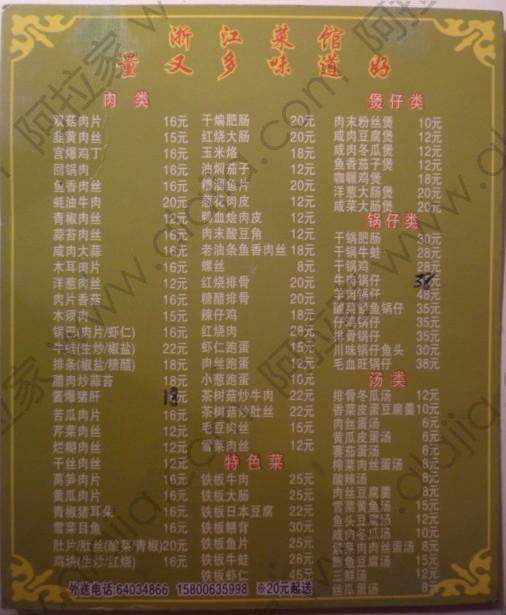 浙江菜馆
量又多味道好
肉类
双菇肉片 16元
韭黄肉丝 15元
宫爆鸡丁 16元
回锅肉 16元
鱼香肉丝 16元
蚝油牛肉 20元
青椒肉丝 12元
蒜苔肉丝 16元
咸肉大蒜 16元
木耳肉片 16元
洋葱肉丝 12元
肉片香菇 16元
木须肉 15元
锅巴(肉片/虾仁) 16元
牛蛙(生炒/椒盐) 22元
排条(椒盐/糖醋) 18元
腊肉炒蒜苔 18元
酱爆猪肝 18元
苦瓜肉片 16元
芹菜肉丝 12元
烂糊肉丝 12元
干丝肉丝 12元
莴笋肉片 16元
黄瓜肉片 16元
青椒猪耳朵 16元
雪菜目鱼 16元
肚片/肚丝(酸菜/青椒)20元
鸡块(生炒/红烧) 16元
干煸肥肠 20元
红烧大肠 20元
玉米烙 18元
油焖茄子 12元
糟溜鱼片 20元
葱花肉皮 12元
鸭血烩肉皮 12元
肉末酸豆角 12元
老油条鱼香肉丝 18元
螺丝 8元
红烧排骨 20元
糖醋排骨 20元
辣仔鸡 18元
红烧肉 28元
虾仁跑蛋 15元
肉丝跑蛋 12元
小葱跑蛋 10元
茶树菇炒牛肉 22元
茶树菇炒肚丝 22元
毛豆肉丝 15元
雪菜肉丝 12元
特色菜
铁板牛肉 25元
铁板大肠 25元
铁板日本豆腐 22元
铁板鳝背 30元
铁板鱼片 25元
铁板牛蛙 28元
铁板虾仁
煲仔类
肉末粉丝煲 10元
咸肉豆腐煲 12元
咸肉冬瓜煲 12元
鱼香茄子煲 12元
咖喱鸡煲 18元
洋葱大肠煲 20元
咸菜大肠煲 20元
锅仔类
干锅肥肠 30元
干锅牛蛙 28元
干锅鸡 28元
牛肉锅仔 38
羊肉锅仔 48元
锅仔 35元
仔鸡锅仔 35元
排骨锅仔 35元
川味锅仔鱼头 30元
毛血旺锅仔 38元
汤类
排骨冬瓜汤 12元
香菜皮蛋豆腐羹 10元
肉丝蛋汤 6元
黄瓜皮蛋汤 6元
蕃茄蛋汤 6元
榨菜肉丝蛋汤 8元
酸辣汤 8元
肉丝豆腐羹 8元
雪菜黄鱼汤 15元
鱼头豆腐汤 12元
咸肉冬瓜汤 12元
肉丝蛋汤 8元
15元
三鲜汤 12元
丝瓜蛋汤 8元
外送电话:64034866 15800635998 ※20元起送
阿拉家 www.alajia.com